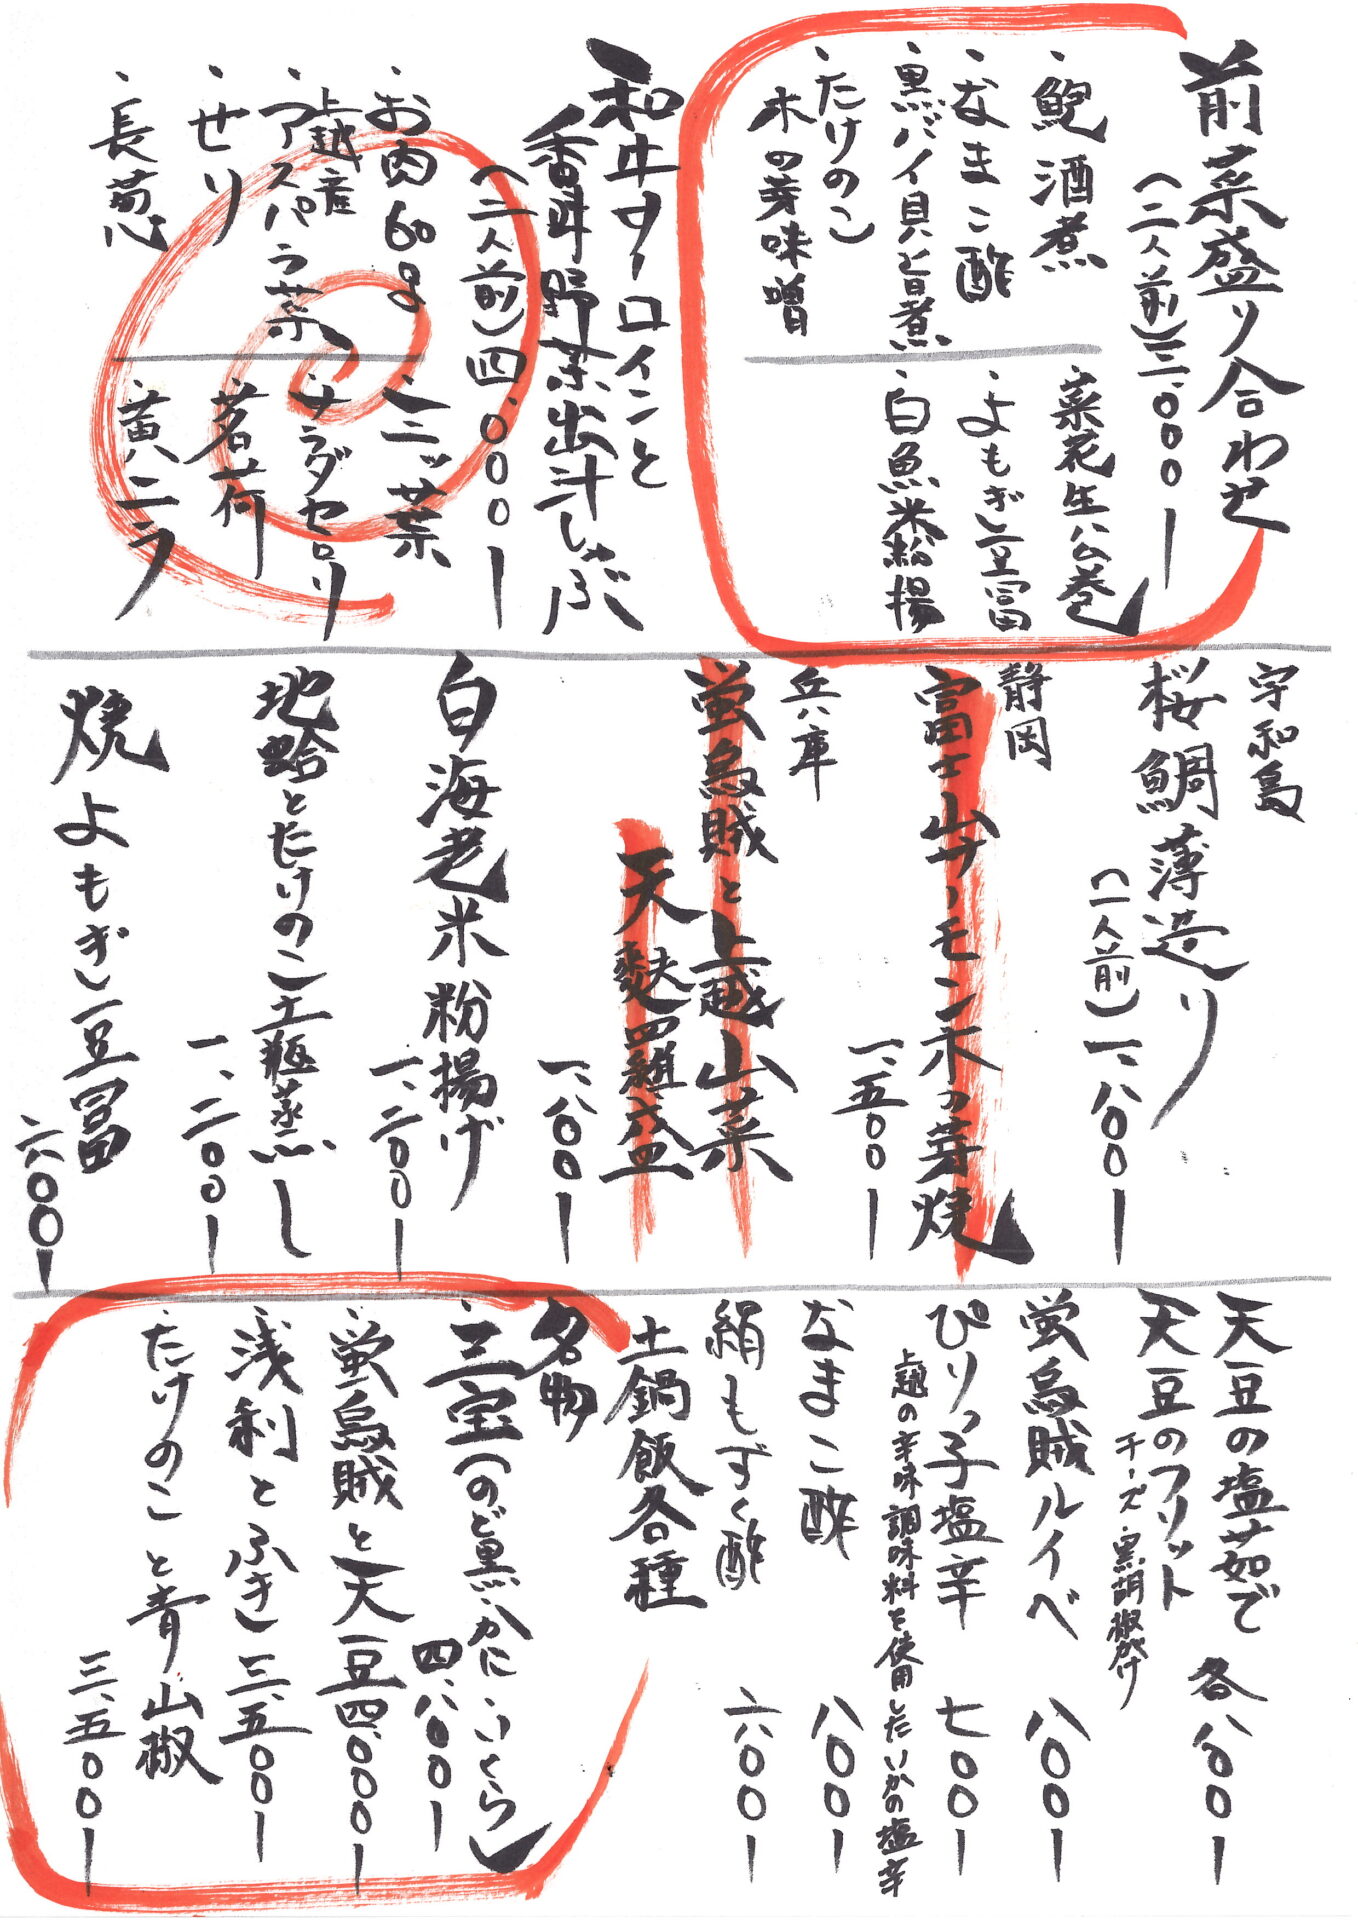 前菜盛り合わせ
(二人前)三、000ー
・鮑酒煮
・なまこ酢
・黒バイ貝旨煮
・たけのこ
木の芽味噌
・菜花生公巻
・よもぎ豆富
・白魚米粉揚
和牛サーロインと
香味野菜出汁しゃぶ
(二人前)四、000ー
・お肉60g
・上越産
アスパラ菜
・せり
・長葱
・ミニッ葉
・サラダセロリ
・茗荷
・黄ニラ
宇和島
桜鯛薄造り
(二人前)一、八00ー
静岡
富士山サーモン木の芽焼
一、五00ー
兵庫
蛍烏賊と上越山菜
天麩羅盛
一、八00ー
白海老米粉揚げ
一、二00ー
地蛤とたけのこ土瓶蒸し
一、二00ー
焼よもぎ豆富
六00ー
天豆の塩茹で
天豆のフリット
チーズ・黒胡椒がけ
各八00ー
蛍烏賊ルイベ 八00ー
ぴりっ子塩辛 七00ー
上越の辛味調味料を使用したいかの塩辛
なまこ酢 八00ー
絹もずく酢 六00ー
土鍋飯各種
名物
・三宝(のど黒・かに・いくら)
四、八00ー
・蛍烏賊と天豆四、000ー
・浅利とふき三、五00ー
・たけのこと青山椒
三、五00ー